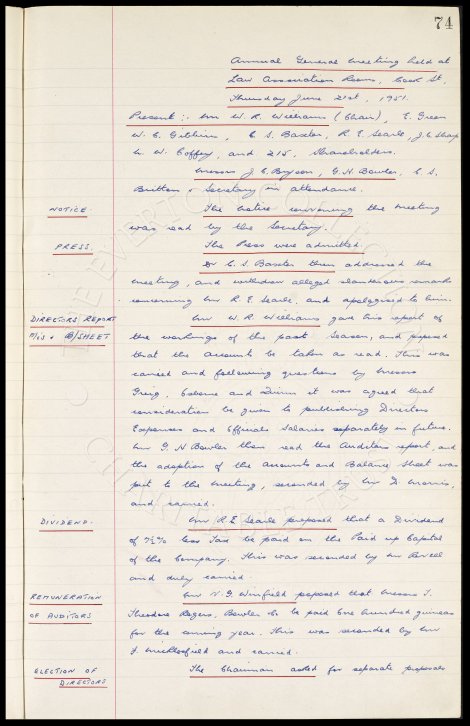 74
Annual General Meeting held at
Law Association Rooms, Cook St,
Thursday June 21st, 1951.
Present :- Mr W. R. Williams (Chair), E. Green
W. C. Gibbins, C. S. Baxter, R. E. Searle, J. C. Sharp
W. Coffey, and 215, Shareholders.
Messrs J. C. Bryson, G. H. Bowler, C. S.
Britton & Secretary in attendance.
NOTICE. The Notice convening the meeting
was read by the Secretary.
PRESS. The Press were admitted.
Dr C. S. Baxter then addressed the
meeting, and withdrew alleged slanderous remarks
concerning Mr R. E. Searle, and apologised to him.
DIRECTORS REPORT Mr W. R. Williams gave his report of
& B/SHEET the workings of the past Season, and proposed
that the accounts be taken as read. This was
carried and following questions by Messrs
Greig, Osborne and Quinn it was agreed that
consideration be given to publishing Directors
Expenses and Officials Salaries separately in future.
Mr G. H Bowler then read the Auditors report, and
the adoption of the Accounts and Balance Sheet was
put to the meeting, seconded by Mr D Morris,
and carried.
DIVIDEND. Mr R. E. Searle proposed that a Dividend
of 7½% less Tax be paid on the Paid up Capital
of the Company. This was seconded by Mr
and duly carried.
REMUNERATION Mr N. G. Winfield proposed that Messrs T.
OF AUDITORS Theodore Rogers, Bowler & Co be paid One hundred guineas
for the ensuing year. This was seconded by Mr
and carried.
ELECTION OF The Chairman asked for separate proposals
DIRECTORS